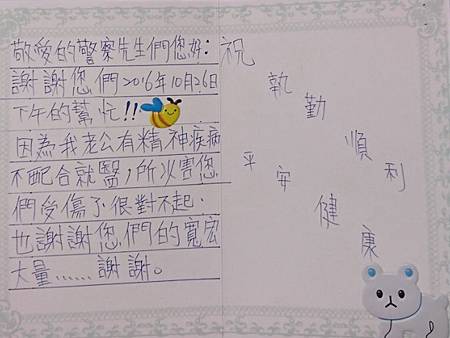 敬愛的警察先生們您好：
謝謝您們2016年10月26日
下午的幫忙!!
因為我老公有精神疾病
不配合就醫，所以害您
們受傷了很對不起．
也謝謝您們的寬宏
大量......謝謝。
祝
執勤
順利
平安
健康